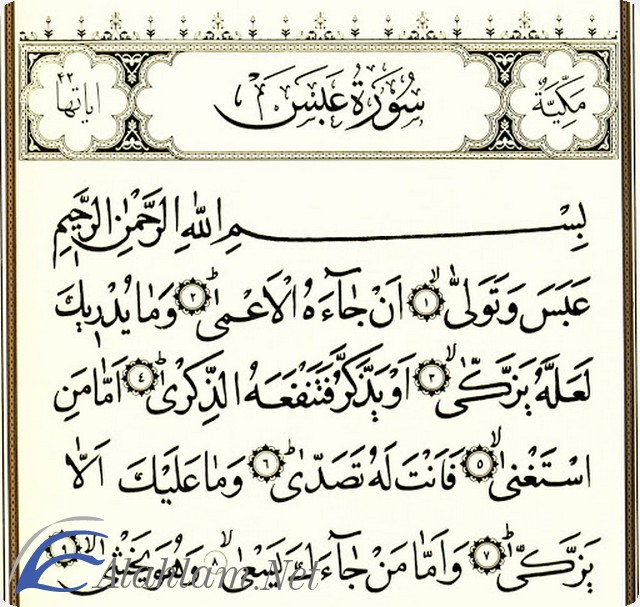 مَكِّيَّةٌ سُورَةُ عَبَسَ اياتها ٤٢
بِسْمِ اللهِ الرَّحْمٰنِ الرَّحِيمِ
عَبَسَ وَتَوَلّٰىۙ ١ اَنْ جَٓاءَهُ الْاَعْمٰىۜ ٢ وَمَا يُدْرٖيكَ
لَعَلَّهُ يَزَّكّٰىۙ ٣ اَوْ يَذَّكَّرُ فَتَنْفَعَهُ الذِّكْرٰىۜ ٤ اَمَّا مَنِ
اسْتَغْنٰىۙ ٥ فَاَنْتَ لَهُ تَصَدّٰىۜ ٦ وَمَا عَلَيْكَ اَلَّا
يَزَّكّٰىۜ ٧ وَاَمَّا مَنْ جَٓاءَكَ يَسْعٰىۙ ٨ وَهُوَ يَخْشٰىۙ ٩
Alahlam.Net